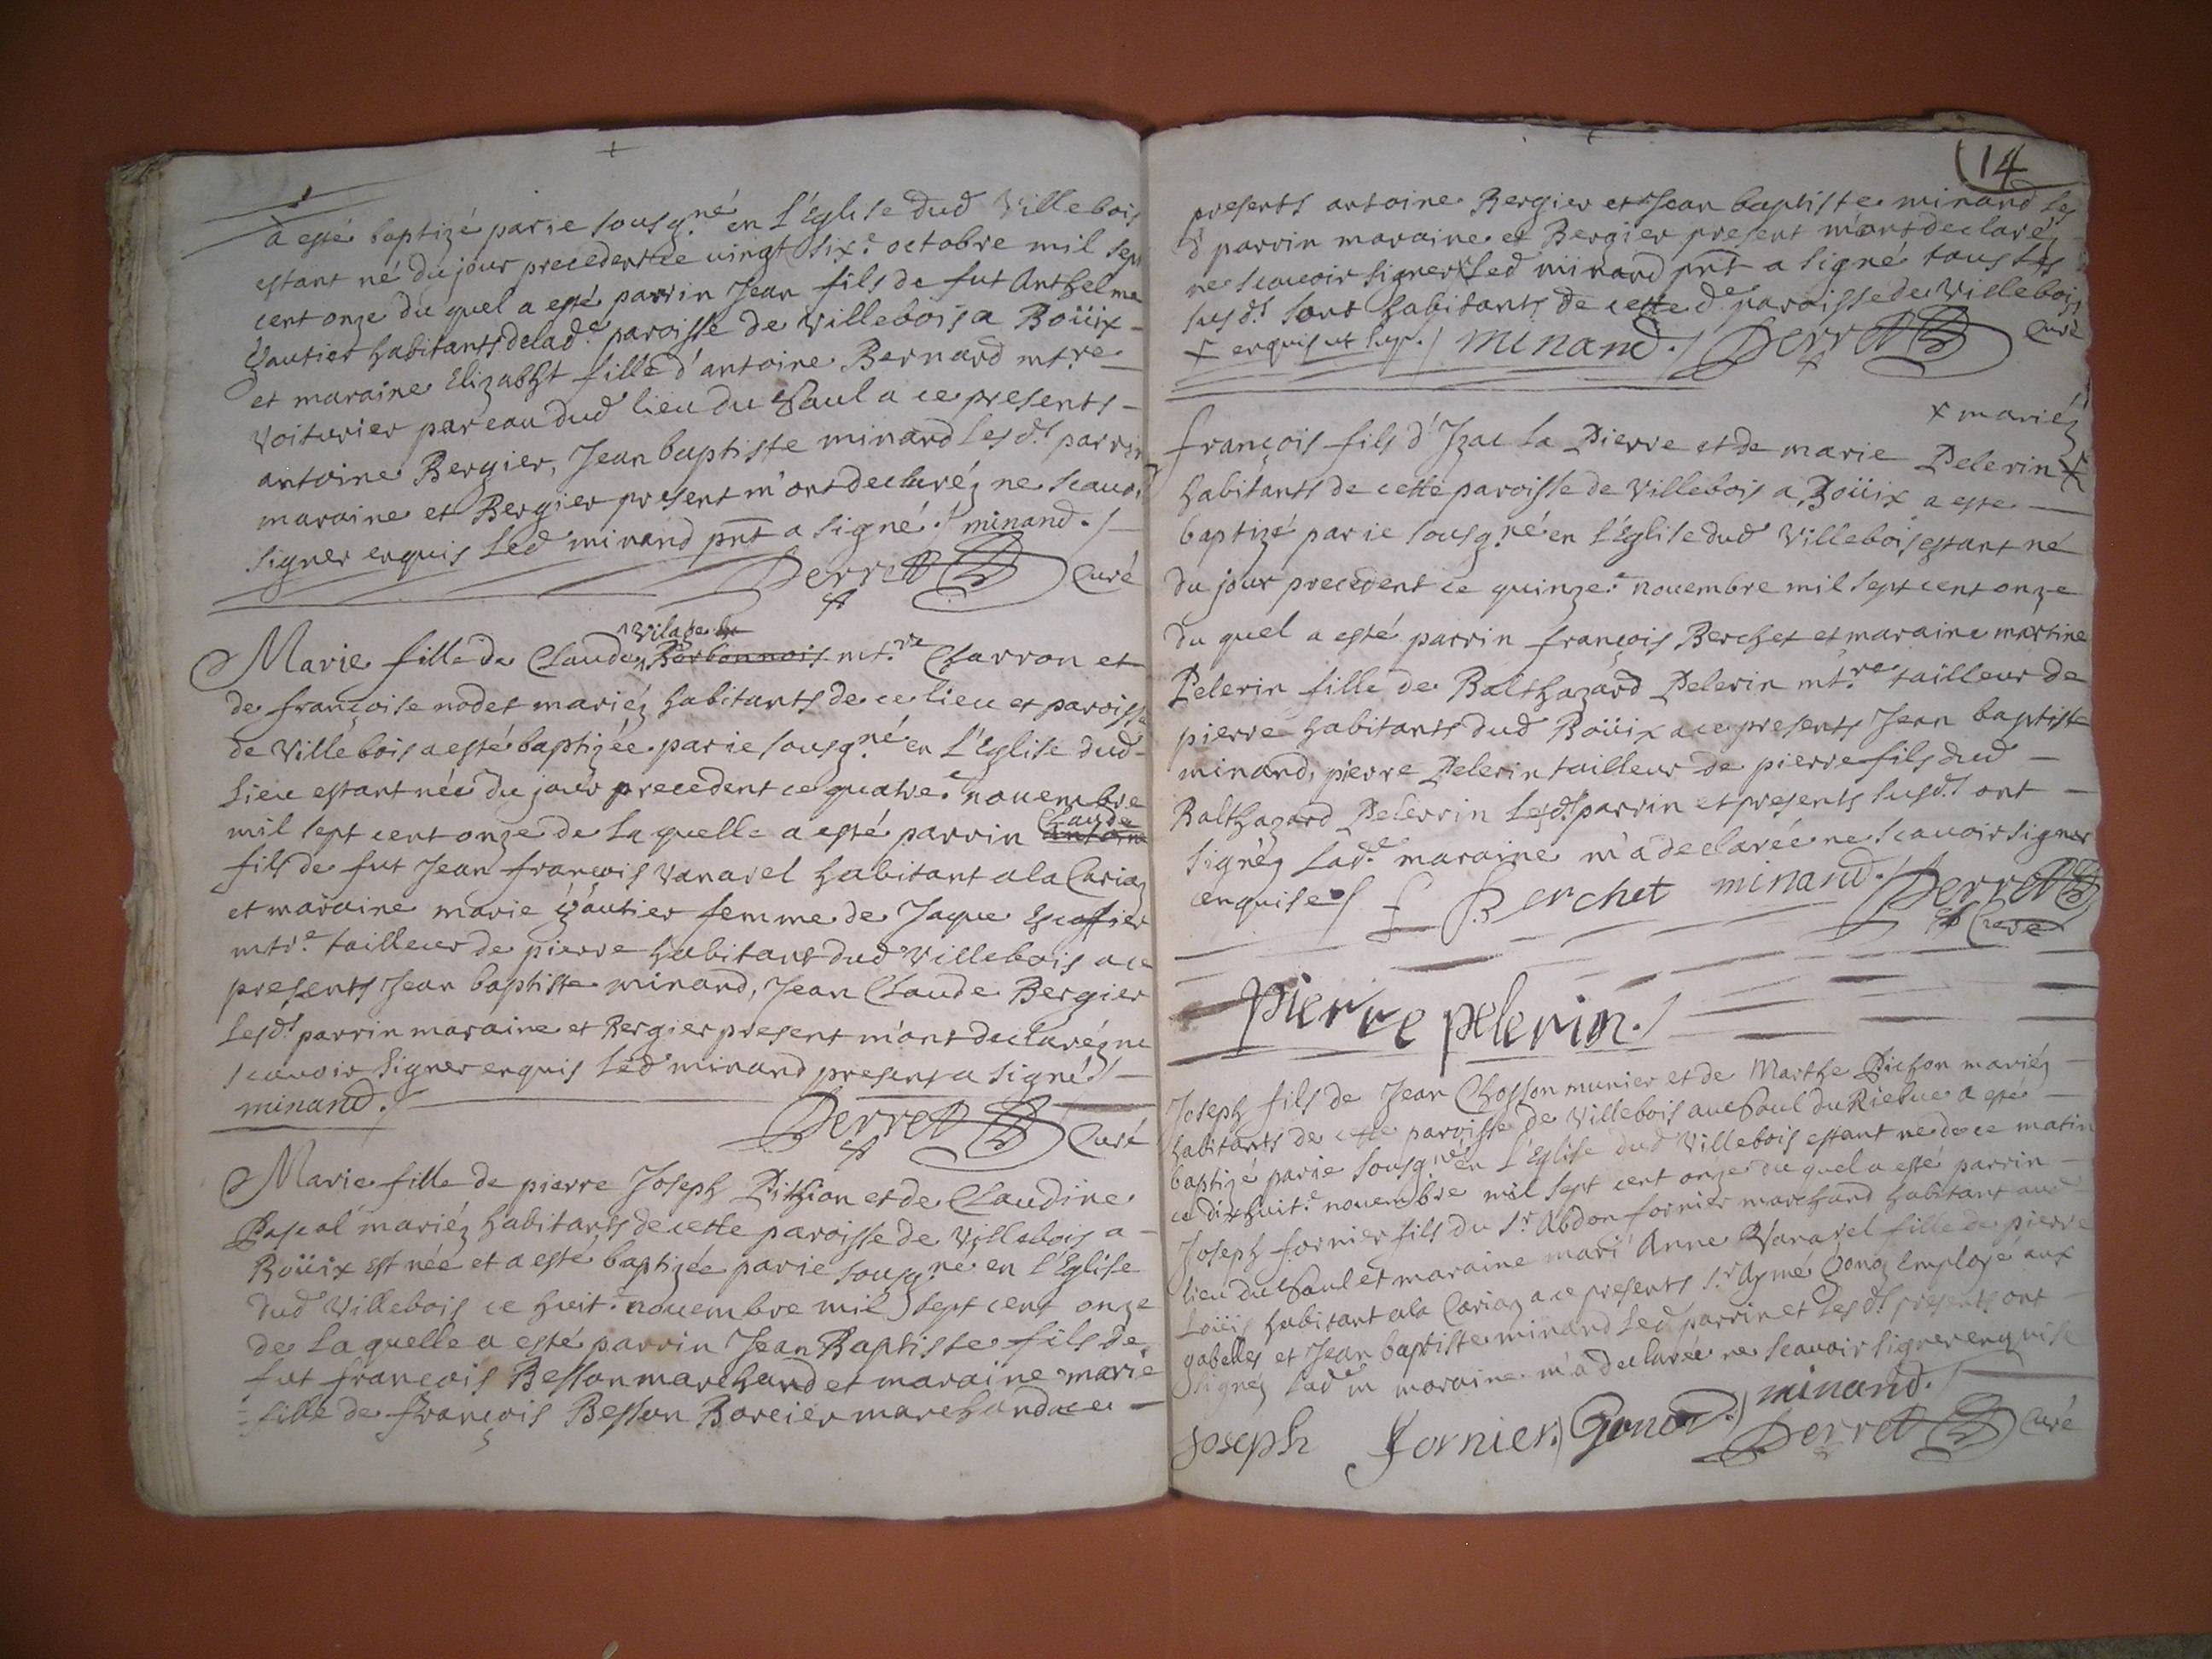 a esté baptizé par ie sousg.né en L'Eglise dud Villebois
estant né du jour precedent ce vingt six.e octobre mil sept
cent onze du quel a esté parrin Jean fils de fut Anthelme
Gautier habitants de lad.e paroisse de Villebois a Boüix
et maraine Elizabht fille d'antoine Bernard mt.re
voiturier par eau dud lieu du Saul a ce presents
antoine Bergier, Jean baptiste minand Lesd.t parrin
maraine et Bergier present m'ont declaréz ne scauoir
signer enquis Led minand pnt a signé./ minand./
Perret Curé
^vilage
Marie fille de Claude Borbonnois mt.re Charron et
de françoise nodet mariéz habitants de ce lieu et paroisse
de Villebois a esté baptizée par ie sousg.né en L'Eglise dud
Lieu estant née du jour precedent ce quatre.e nouembre
mil sept cent onze de La quelle a esté parrin Claude antoine
fils de fut Jean françois Vanarel habitant a la Cariaz
et maraine marie Gautier femme de Jaque Escoffier
mtr.e tailleur de pierre habitant dud Villebois a ce
presents Jean baptiste minand, Jean Claude Bergier
Lesd.t parrin maraine et Bergier present m'ont declaréz ne
scauoir signer enquis Led minand present a signé./
minand./
Perret Curé
Marie fille de pierre Joseph Pithion et de Claudine
Pascal mariéz habitants de cette paroisse de Villebois a
Boüix est née et a esté baptizée par ie sousg.né en l'Eglise
dud Villebois ce huit.e nouembre mil sept cent onze
de La quelle a esté parrin Jean Baptiste fils de
fut françois Besson marchand et maraine marie
fille de françois Besson marchand a ce
14
presents antoine Bergier et Jean baptiste minand Les
d parrin maraine et Bergier present m'ont declaréz
ne scauoir signer x Led minand pnt a signé tous Les
susd.t sont habitants de cette d.e paroisse de Villebois
x enquis ut sup./ minand./ Perret Curé
x mariéz
françois fils d'Izac La Pierre et de marie Pelerin x
habitants de cette paroisse de Villebois a Boüix a esté
baptizé par ie sousg.né en L'Eglise dud Villebois estant né
du jour precedent ce quinze.e nouembre mil sept cent onze
du quel a esté parrin françois Berchet et maraine martine
Pelerin fille de Balthazard Pelerin mt.re tailleur de
pierre habitants dud Boüix a ce presents Jean baptiste
minand, pierre Pelerin tailleur de pierre fils dud
Balthazard Pelerrin Lesd.t parrin et presents susd.t ont
signéz Lad.e maraine m'a declarée ne scauoir signer
enquise./ f Berchet minand./ Perret
Curé
pierre pelerin./
Joseph fils de Jean Chosson munier et de Marthe Pichon mariéz
habitants de cette paroisse de Villebois au Saul du Riebue a esté
baptizé par ie sousg.né en L'Eglise dud Villebois estant né de ce matin
ce dixhuit.e nouembre mil sept cent onze du quel a esté parrin
Joseph fornier fils du S.r Abdon fornier marchand habitant aud
lieu du Saul et maraine mari Anne Vanarel fille de pierre
Loüis habitant a la Cariaz a ce presents S.r Aymé Gonoz Employé aux
gabelles et Jean baptiste minand Led parrin et Lesd.t presents ont
signéz Lad.e maraine m'a declarée ne scauoir signer enquise
Joseph Fornier./ Gonod./ minand./
Perret Curé